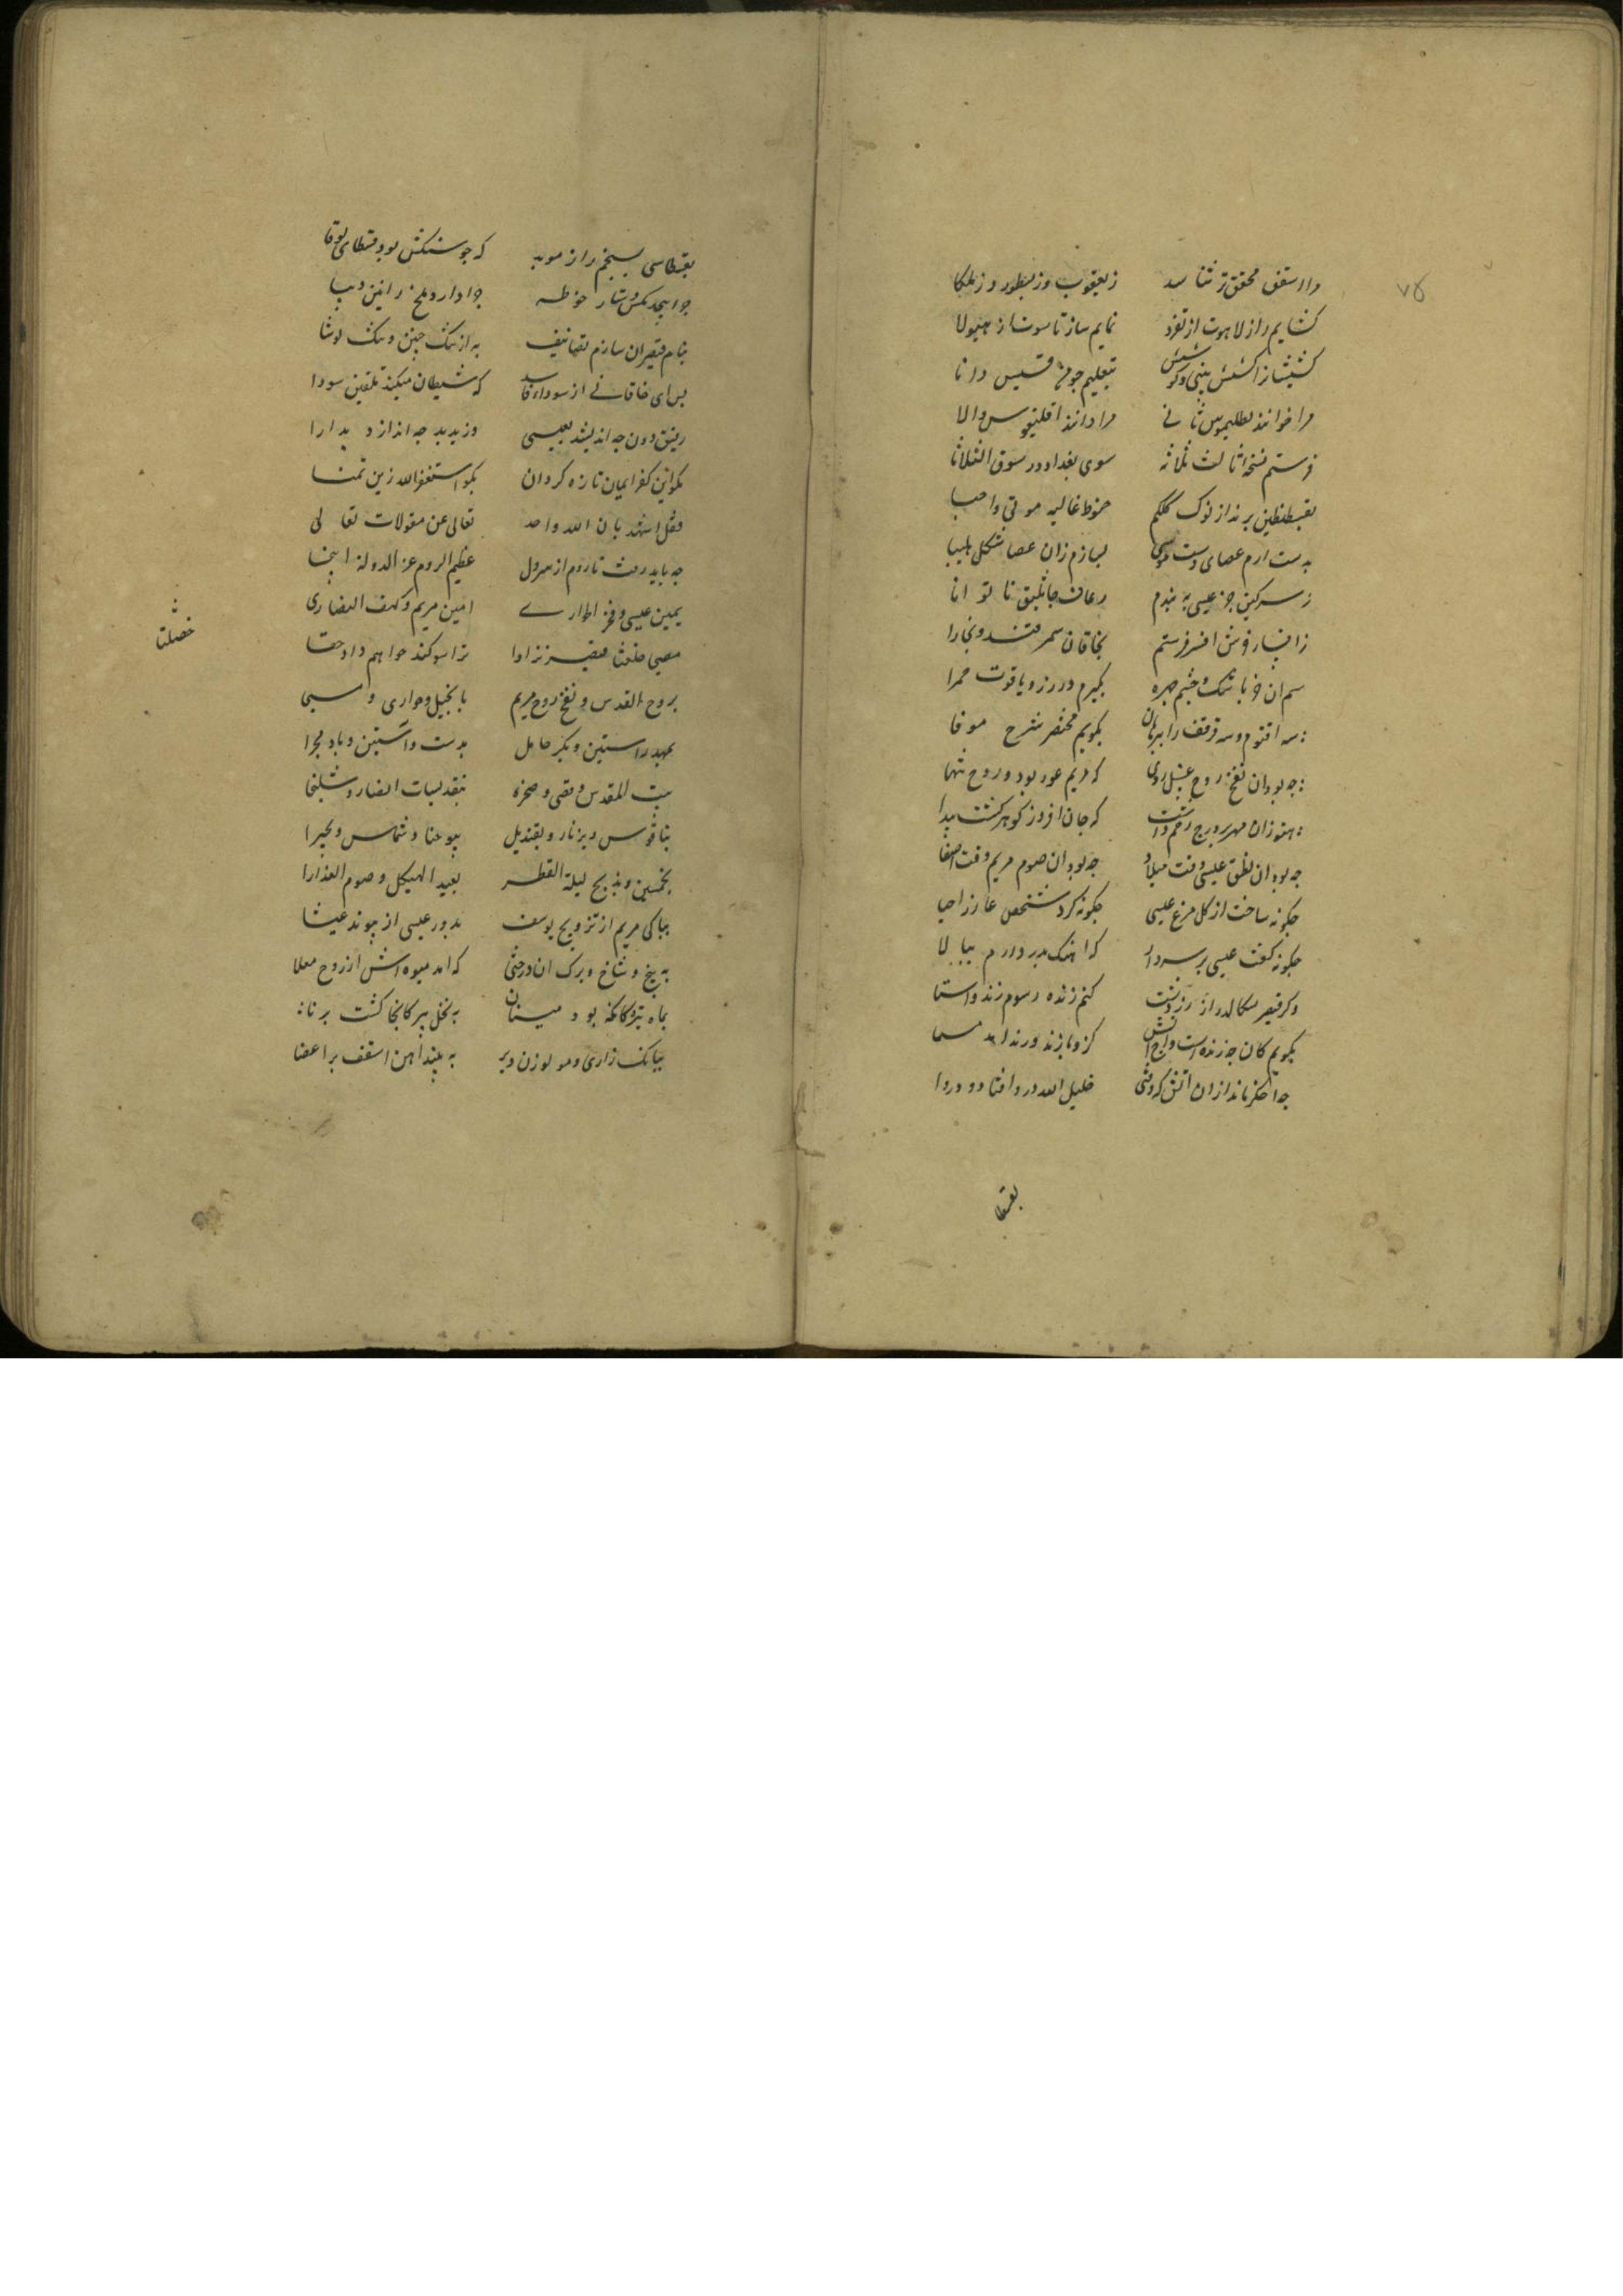 ۷۵
مرا اسقف محقق تر شناسد ز یعقوب و ز نسطور و ز ملکا
کشایم راز لاهوت از تفرد نمایم ساز ناسوت از هیولا
کشیشانرا کشش بینی و کوشش بتعلیم جو من قسیس دانا
مرا خوانند بطلیموس ثانی مرا دانند فیلقوس والا
فرستم نسخه ثالث ثلاثه سوی بغداد در سوق الثلاثا
بقسطنطین برند از نوک کلکم حنوط غالیه موتی و احیا
بدست ارم عصای دست موسی بسازم زان عصا شکل چلیپا
ز سرکین خر عیسی به بندم رعاف جاثلیق ناتوانا
ز افسار خرش افسر فرستم بخاقان سمرقند و بخارا
سم ان خر باشک و چشم چهره بکیرم در زر و یاقوت حمرا
سه اقنوم و سه قرقف را ببرهان بکویم مختصر شرح موفا
چه بود ان نفخ روح و غسل و روزه که مریم عور بود و روح تنها
هنوز ان مهر بر درج رحم داشت که جان افروز کوهر کشت پیدا
چه بود ان نطق عیسی وقت میلاد چه بود ان صوم مریم وقت اصغا
چکونه ساخت از کل مرغ عیسی چکونه کرد شخص عازر احیا
چکونه کفت عیسی بر سر دار که اهنک پدر دارم ببالا
وکر قیصر سکالد راز زردشت کنم زنده رسوم زند و استا
بکویم کان چه زندست و چه اتش کزو پازند و زند امد مسما
چه اخکر ماند از ان اتش که وقتی خلیل الله در و افتاد دروا
بقسطا
بقسطاسی بسنجم راز موبد که جوسنکش بود قسطای لوقا
چرا پیچد مکس دستار فوطه چرا دارد ملخ رانین دیبا
بنام قیصران سازم تصانیف به از ارتنک چین و تنکلوشا
بس ای خاقانی از سودای فاسد که شیطان میکند تلقین سودا
رفیق دون چه اندیشد بعیسی وزیر بد چه اندازد بدارا
مکو این کفر ایمان تازه کردان بکو استغفر الله زین تمنا
فقل اشهد بان الله واحد تعالی عن مقولات تعالی
چه باید رفت تا روم از سر ذل عظیم الروم عز الدوله اینجا
یمین عیسی و فخر الحواری امین مریم و کهف النصاری
مسیحی خصلتا قیصر نژادا ترا سوکند خواهم داد حقا
بروح القدس و نفخ روح مریم بانجیل و حواری و مسیحا
بمهد راستین و بکر حامل بدست و آستین و باد مجرا
ببیت المقدس و اقصی و صخره بتقدیسات انصار و شلیخا
بناقوس و بزنار و بقندیل بیوحنا و شماس و بحیرا
بخمسین و بذبح لیلة الفطر بعید الهیکل و صوم العذارا
بپاکی مریم از تزویج یوسف بدوری عیسی از پیوند عیشا
به بیخ و شاخ و برک ان درختی که امد میوه اش از روح معلا
بماه تیر کانکه بود نیسان به نخل پیر کانجا کشت برنا
ببانک زاری مولوزن دیر به بند آهن اسقف بر اعضا
خصلتا